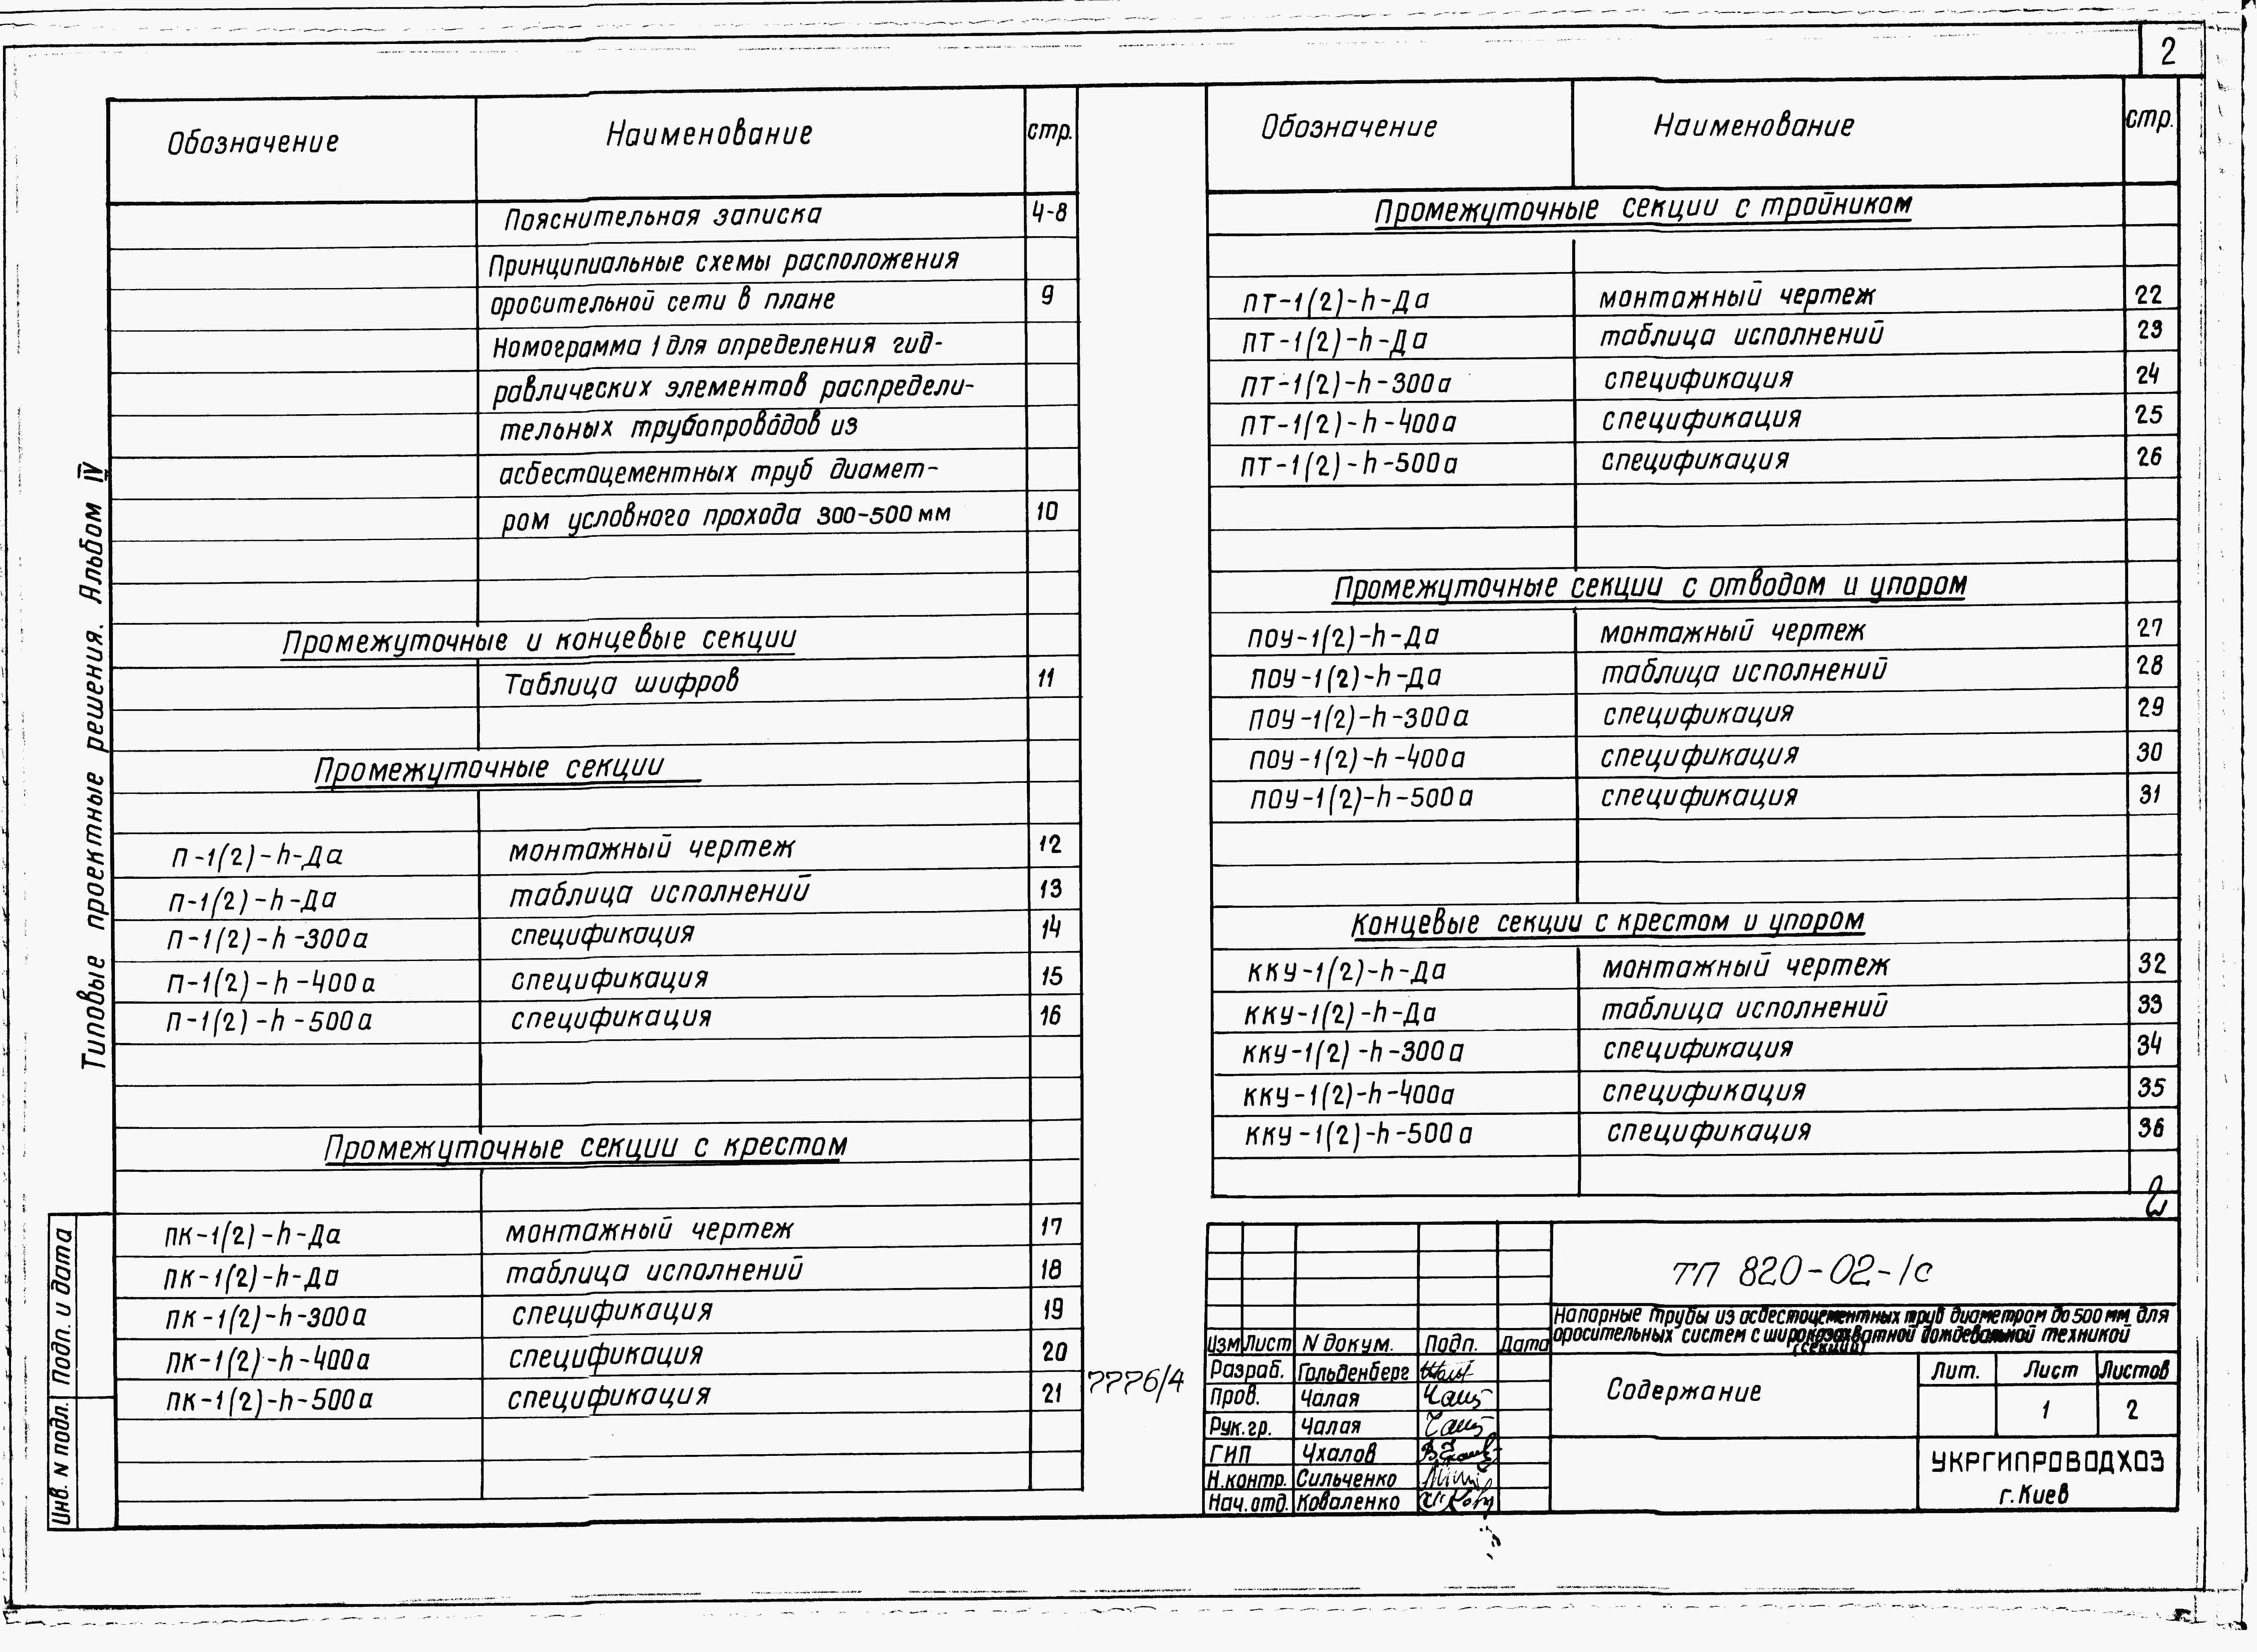 2
Типовые проектные решения. Альбом IV
Обозначение Наименование стр.
Пояснительная записка 4-8
Принципиальные схемы расположения
оросительной сети в плане 9
Номограмма 1 для определения гид-
равлических элементов распредели-
тельных трубопроводов из
асбестоцементных труб диамет-
ром условного прохода 300-500 мм 10
Промежуточные и концевые секции
Таблица шифров 11
Промежуточные секции
П-1(2)-h-Да монтажный чертеж 12
П-1(2)-h-Да таблица исполнений 13
П-1(2)-h-300а спецификация 14
П-1(2)-h-400а спецификация 15
П-1(2)-h-500а спецификация 16
Промежуточные секции с крестом
ПК-1(2)-h-Да монтажный чертеж 17
ПК-1(2)-h-Да таблица исполнений 18
ПК-1(2)-h-300а спецификация 19
ПК-1(2)-h-400а спецификация 20
ПК-1(2)-h-500а спецификация 21
Подп. и дата
Инв. N подл.
7776/4
Обозначение Наименование стр.
Промежуточные секции с тройником
ПТ-1(2)-h-Да монтажный чертеж 22
ПТ-1(2)-h-Да таблица исполнений 23
ПТ-1(2)-h-300а спецификация 24
ПТ-1(2)-h-400а спецификация 25
ПТ-1(2)-h-500а спецификация 26
Промежуточные секции с отводом и упором
ПОУ-1(2)-h-Да монтажный чертеж 27
ПОУ-1(2)-h-Да таблица исполнений 28
ПОУ-1(2)-h-300а спецификация 29
ПОУ-1(2)-h-400а спецификация 30
ПОУ-1(2)-h-500а спецификация 31
Концевые секции с крестом и упором
ККУ-1(2)-h-Да монтажный чертеж 32
ККУ-1(2)-h-Да таблица исполнений 33
ККУ-1(2)-h-300а спецификация 34
ККУ-1(2)-h-400а спецификация 35
ККУ-1(2)-h-500а спецификация 36
ТП 820-02-1с
Напорные трубы из асбестоцементных труб диаметром до 500 мм для
оросительных систем с широкозахватной дождевальной техникой
(секции)
Изм Лист N докум. Подп. Дата
Разраб. Гольденберг
Пров. Чалая
Рук.гр. Чалая
ГИП Чхалов
Н.контр. Сильченко
Нач.отд. Коваленко
Содержание
Лит. Лист Листов
1 2
УКРГИПРОВОДХОЗ
г.Киев